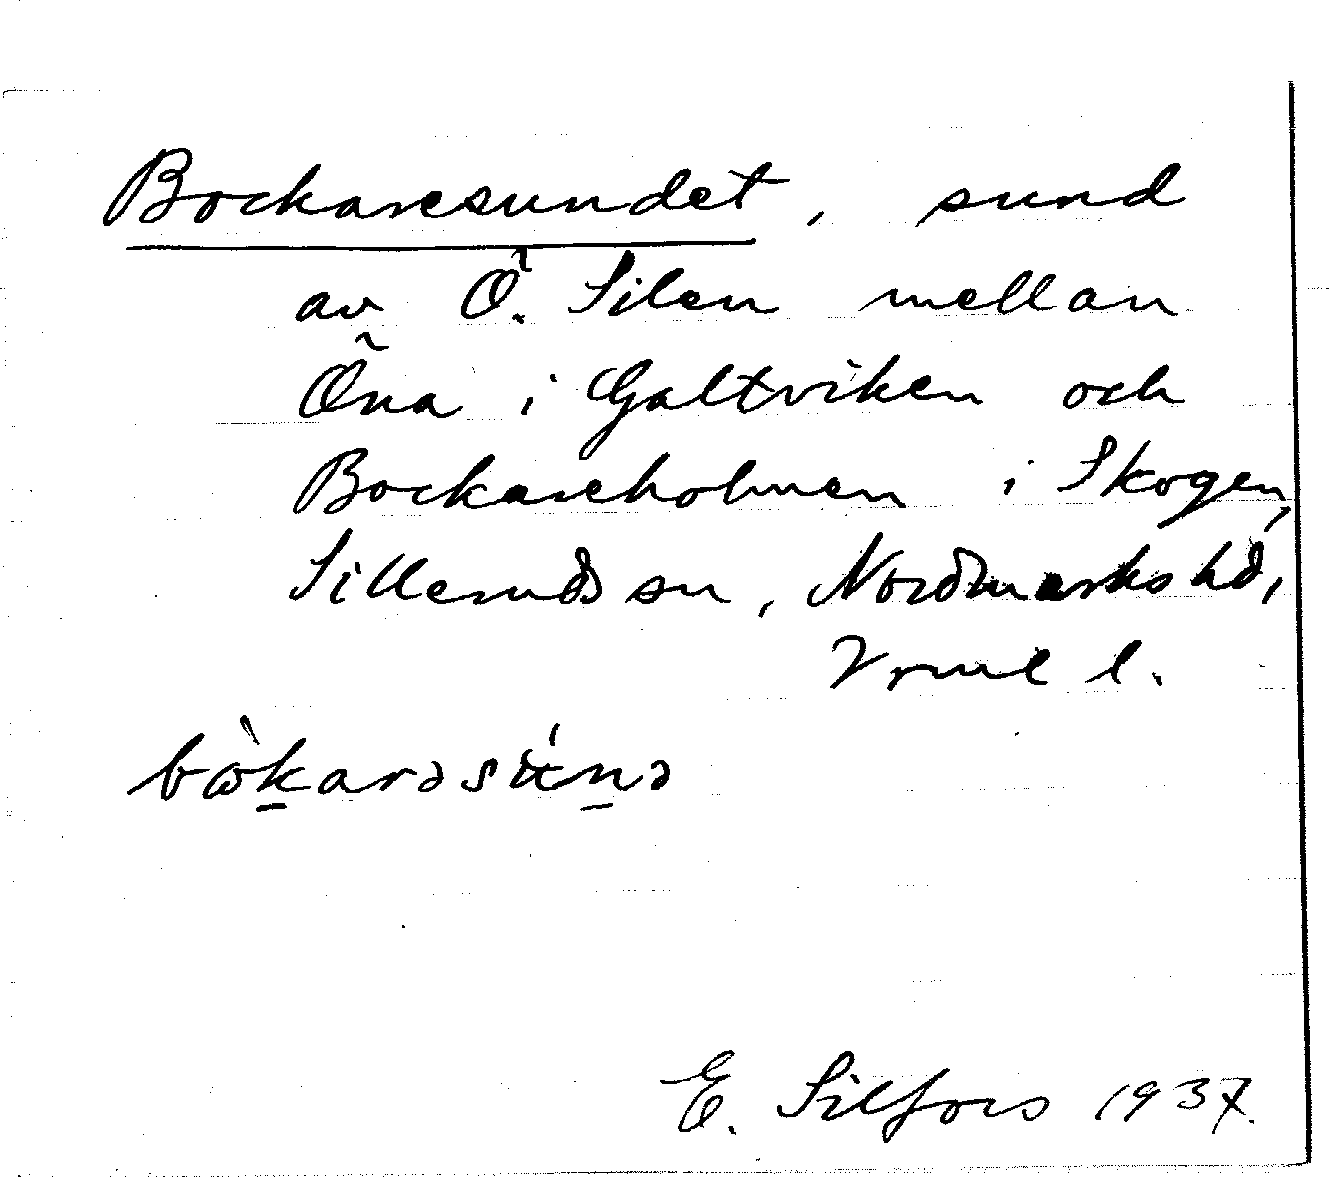 Bockaresundet, sund
av Ö. Silen mellan
Öna i Galtviken och
Bockareholmen i Skogen,
Silleruds sn, Nordmarks hd,
Vrml l.
bὼkarəsúnə
E. Silfors 1937.